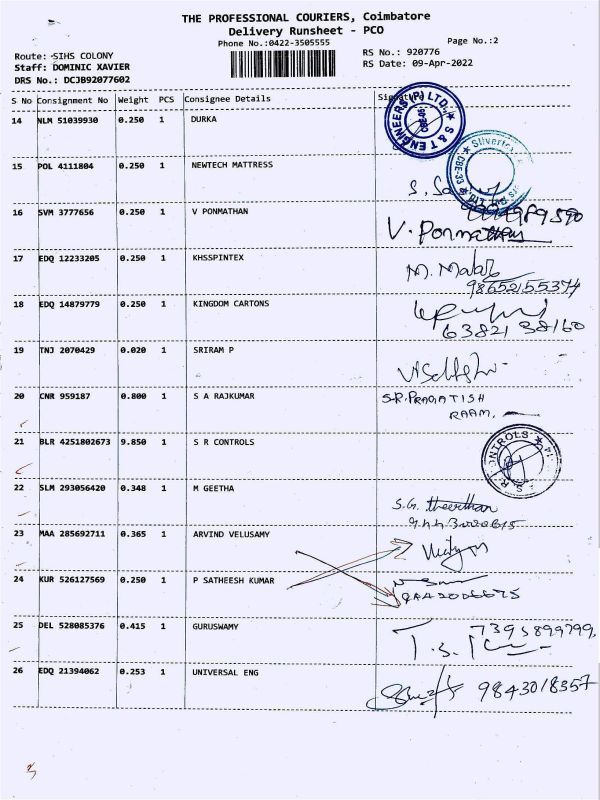 THE PROFESSIONAL COURIERS, Coimbatore
Delivery Runsheet - PCO
Phone No.:0422-3505555
Page No.:2
Route: SIHS COLONY
RS No.: 920776
Staff: DOMINIC XAVIER
RS Date: 09-Apr-2022
DRS No.: DCJB92077602
S No Consignment No Weight PCS Consignee Details Signature
14 NLM 51039930 0.250 1 DURKA
S & T ENGINEERS (P) LTD. CBE-05
15 POL 4111804 0.250 1 NEWTECH MATTRESS
CBE-33
16 SVM 3777656 0.250 1 V PONMATHAN
V. Ponmathan
17 EDQ 12233205 0.250 1 KHSSPINTEX
M. Malar
9865215 5374
18 EDQ 14879779 0.250 1 KINGDOM CARTONS
63821 38160
19 TNJ 2070429 0.020 1 SRIRAM P
20 CNR 959187 0.800 1 S A RAJKUMAR S.R. PRAGATISH
RAAM.
21 BLR 4251802673 9.850 1 S R CONTROLS
S. R. CONTROLS
22 SLM 293056420 0.348 1 M GEETHA
S.G. theerthan
23 MAA 285692711 0.365 1 ARVIND VELUSAMY
24 KUR 526127569 0.250 1 P SATHEESH KUMAR
25 DEL 528085376 0.415 1 GURUSWAMY 7395899799,
26 EDQ 21394062 0.253 1 UNIVERSAL ENG
9843018357